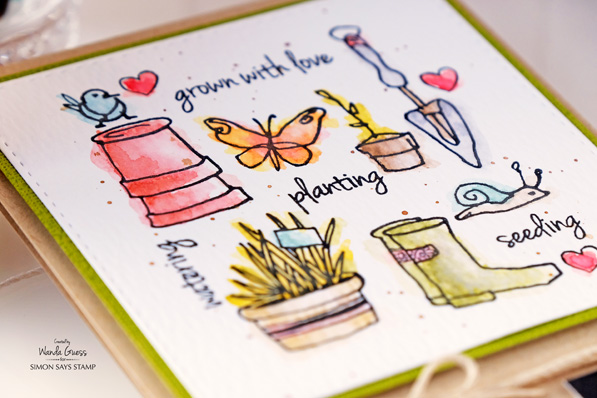 grown with love
planting
seeding
watering
Created by
Wanda Guess
for
SIMON SAYS STAMP